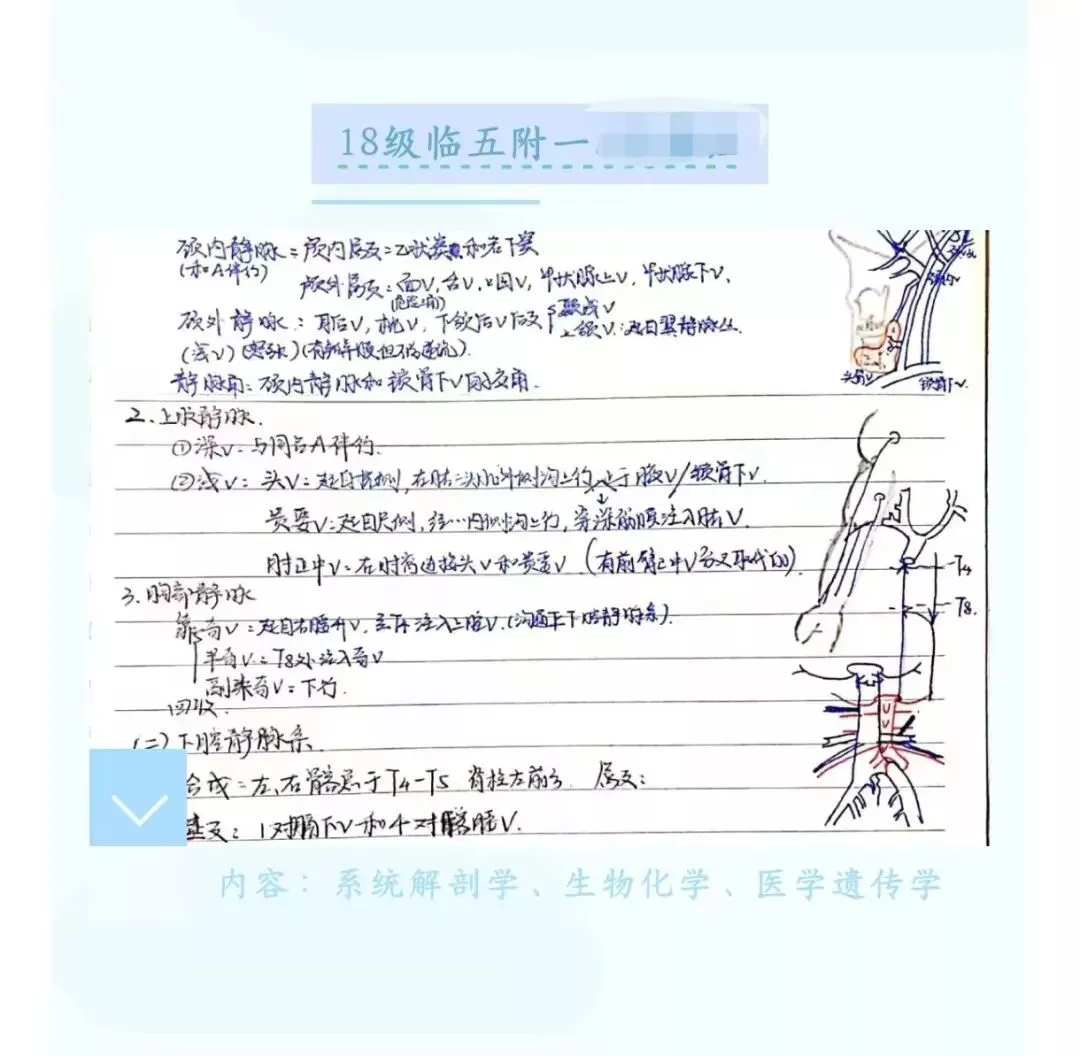 18级临五附一
颈内静脉:颅内属支:乙状窦和岩下窦
(和A伴行)
颅外属支:面V,舌V,咽V,甲状腺上V,甲状腺下V,
(危险三角)
颈外静脉:耳后V,枕V,下颌后V后支
颞浅V
上颌V:起自翼静脉丛
(浅V)(怒张)(有瓣膜但不能逆流).
静脉角:颈内静脉和锁骨下V的交角.
头臂V
锁骨下V.
2.上肢静脉.
①深V:与同名A伴行.
②浅V:头V:起自桡侧,在肱二头肌外侧沟上行,止于腋V/锁骨下V.
贵要V:起自尺侧,经…内侧沟上行,穿深筋膜注入肱V.
肘正中V:在肘窝连接头V和贵要V (有前臂正中V分叉取代的).
T4
T8.
3.胸部静脉
奇V:起自右腰升V,至T4注入上腔V.(沟通上下腔静脉系).
半奇V:T8处注入奇V
副半奇V:下行.
回收.
(二)下腔静脉系.
合成:左、右髂总于T4-T5 脊柱右前方. 属支:
壁支:1对膈下V和4对腰V.
内容:系统解剖学、生物化学、医学遗传学